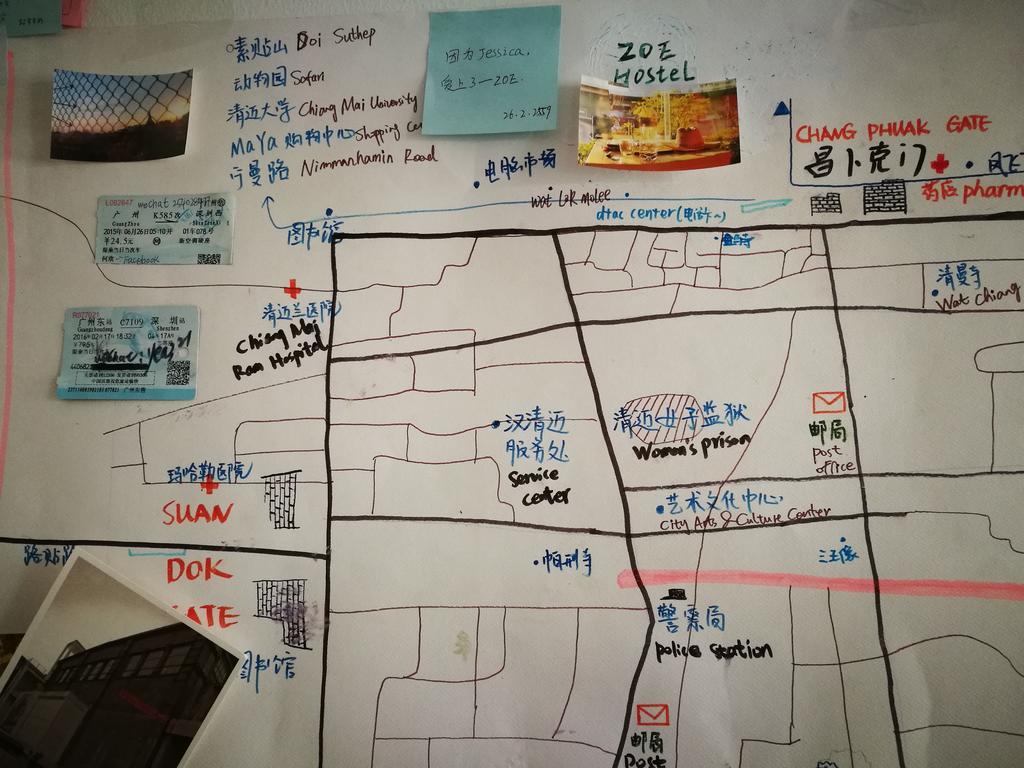 素贴山 Doi Suthep
动物园 Safari
清迈大学 Chiang Mai University
MaYa 购物中心 Shopping Cen
宁曼路 Nimmanhamin Road
因为Jessica,
爱上3-ZOE.
26.2.2559
ZOE
HOSTEL
CHANG PHUAK GATE
昌卜克门
药店 pharm
电脑市场
wat LoK molee
dtac center(电话卡~)
图书馆
L092647
wechat
广州 K585次 深圳西
GuangZhou
2015年06月26日05:10开 01车078号
¥24.5元
新空调硬座
限乘当日当次车
Facebook
R077021
广州东站 C7109 深圳站
Guangzhoudong Shenzhen
2016年02月17日18:32开
¥79.5元
中国铁路祝您旅途愉快
广州东售
清迈兰医院
Chiang Mai
Ram Hospital
清曼寺
Wat Chiang
汉清迈
服务处
Service
center
清迈女子监狱
Women's prison
邮局
post
office
艺术文化中心
City Arts & Culture Center
玛哈勒医院
SUAN
DOK
ATE
帕刑寺
王像
警察局
police station
图书馆
邮局
Post